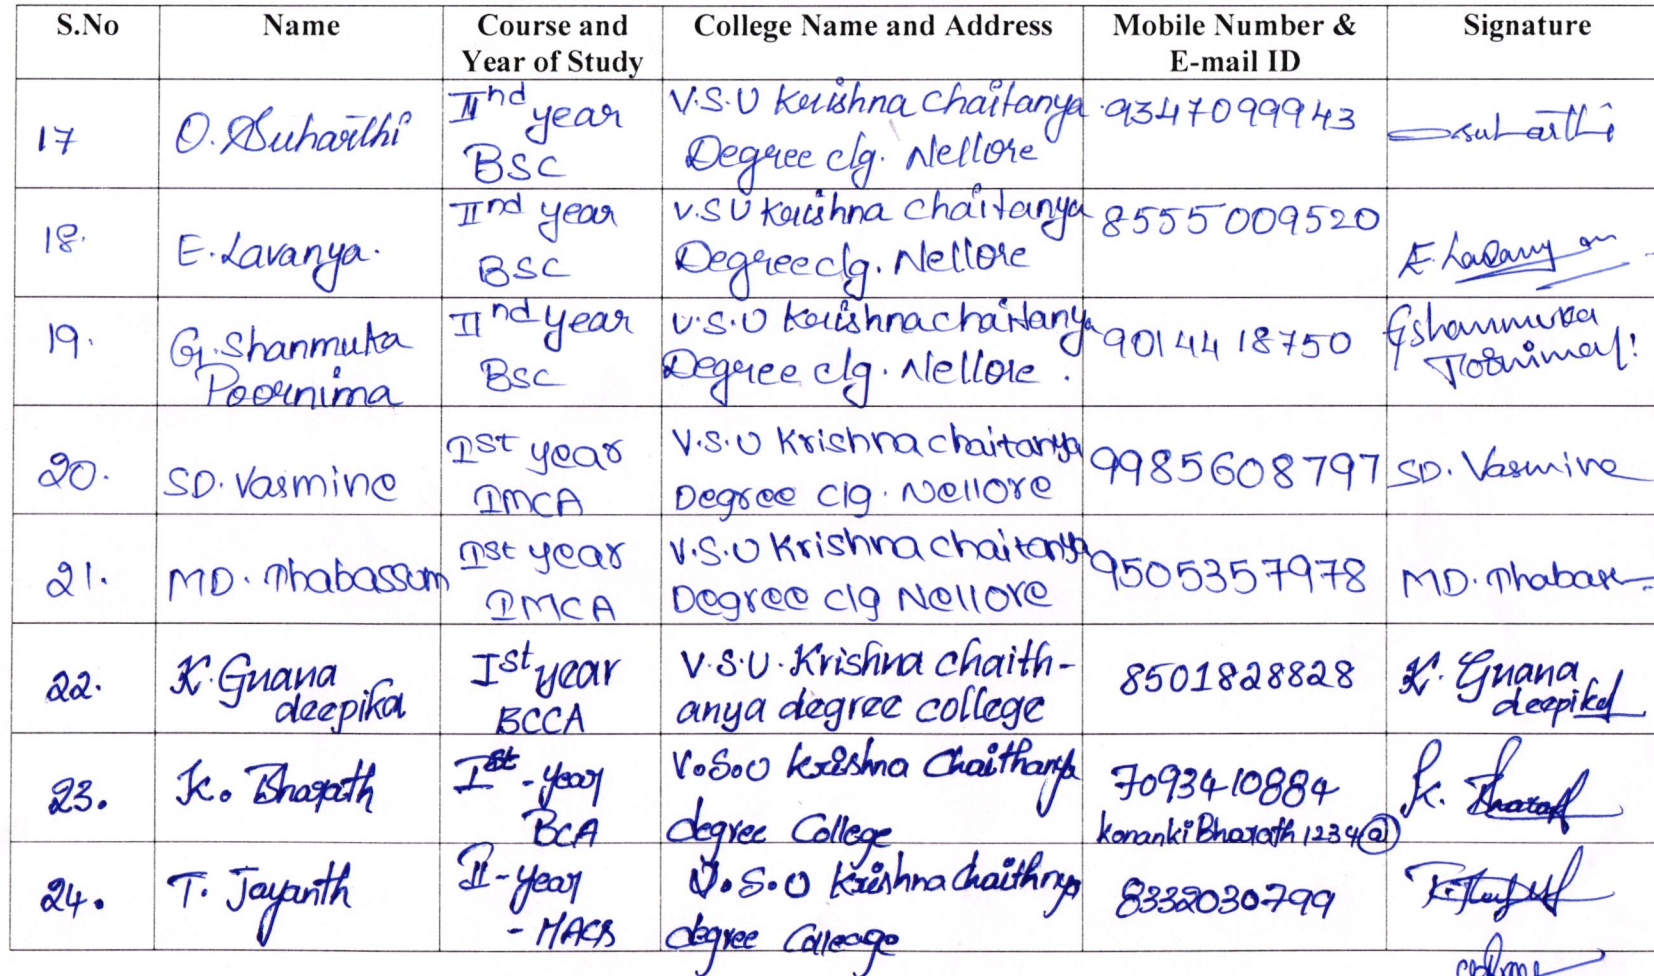 S.No Name Course and Year of Study College Name and Address Mobile Number & E-mail ID Signature
17 O. Suharithi IInd year BSC V.S.U Krishna Chaitanya Degree clg. Nellore 9347099943 Osuharithi
18. E. Lavanya. IInd year BSC V.S U Krishna Chaitanya Degree clg. Nellore 8555009520 E. Lavanya
19. G. Shanmuka Poornima IInd year BSC V.S.U Krishna chaitanya Degree clg. Nellore. 9014418750 G shanmuka Poornima
20. SD. Vasmine Ist year IMCA V.S.U Krishna chaitanya Degree clg. Nellore 9985608797 SD. Vasmine
21. MD. Thabassum Ist year IMCA V.S.U Krishna chaitanya Degree clg Nellore 9505357978 MD. Thabas
22. K. Gnana deepika Ist year BCCA V.S.U. Krishna chaith- anya degree college 8501828828 K. Gnana deepika
23. K. Bharath Ist-year BCA V.S.U Krishna Chaithanya degree College 7093410884 konankiBharath1234@ K. Bharath
24. T. Jayanth II-year - MACS V.S.U Krishna Chaithnya degree Colleage 8332030799